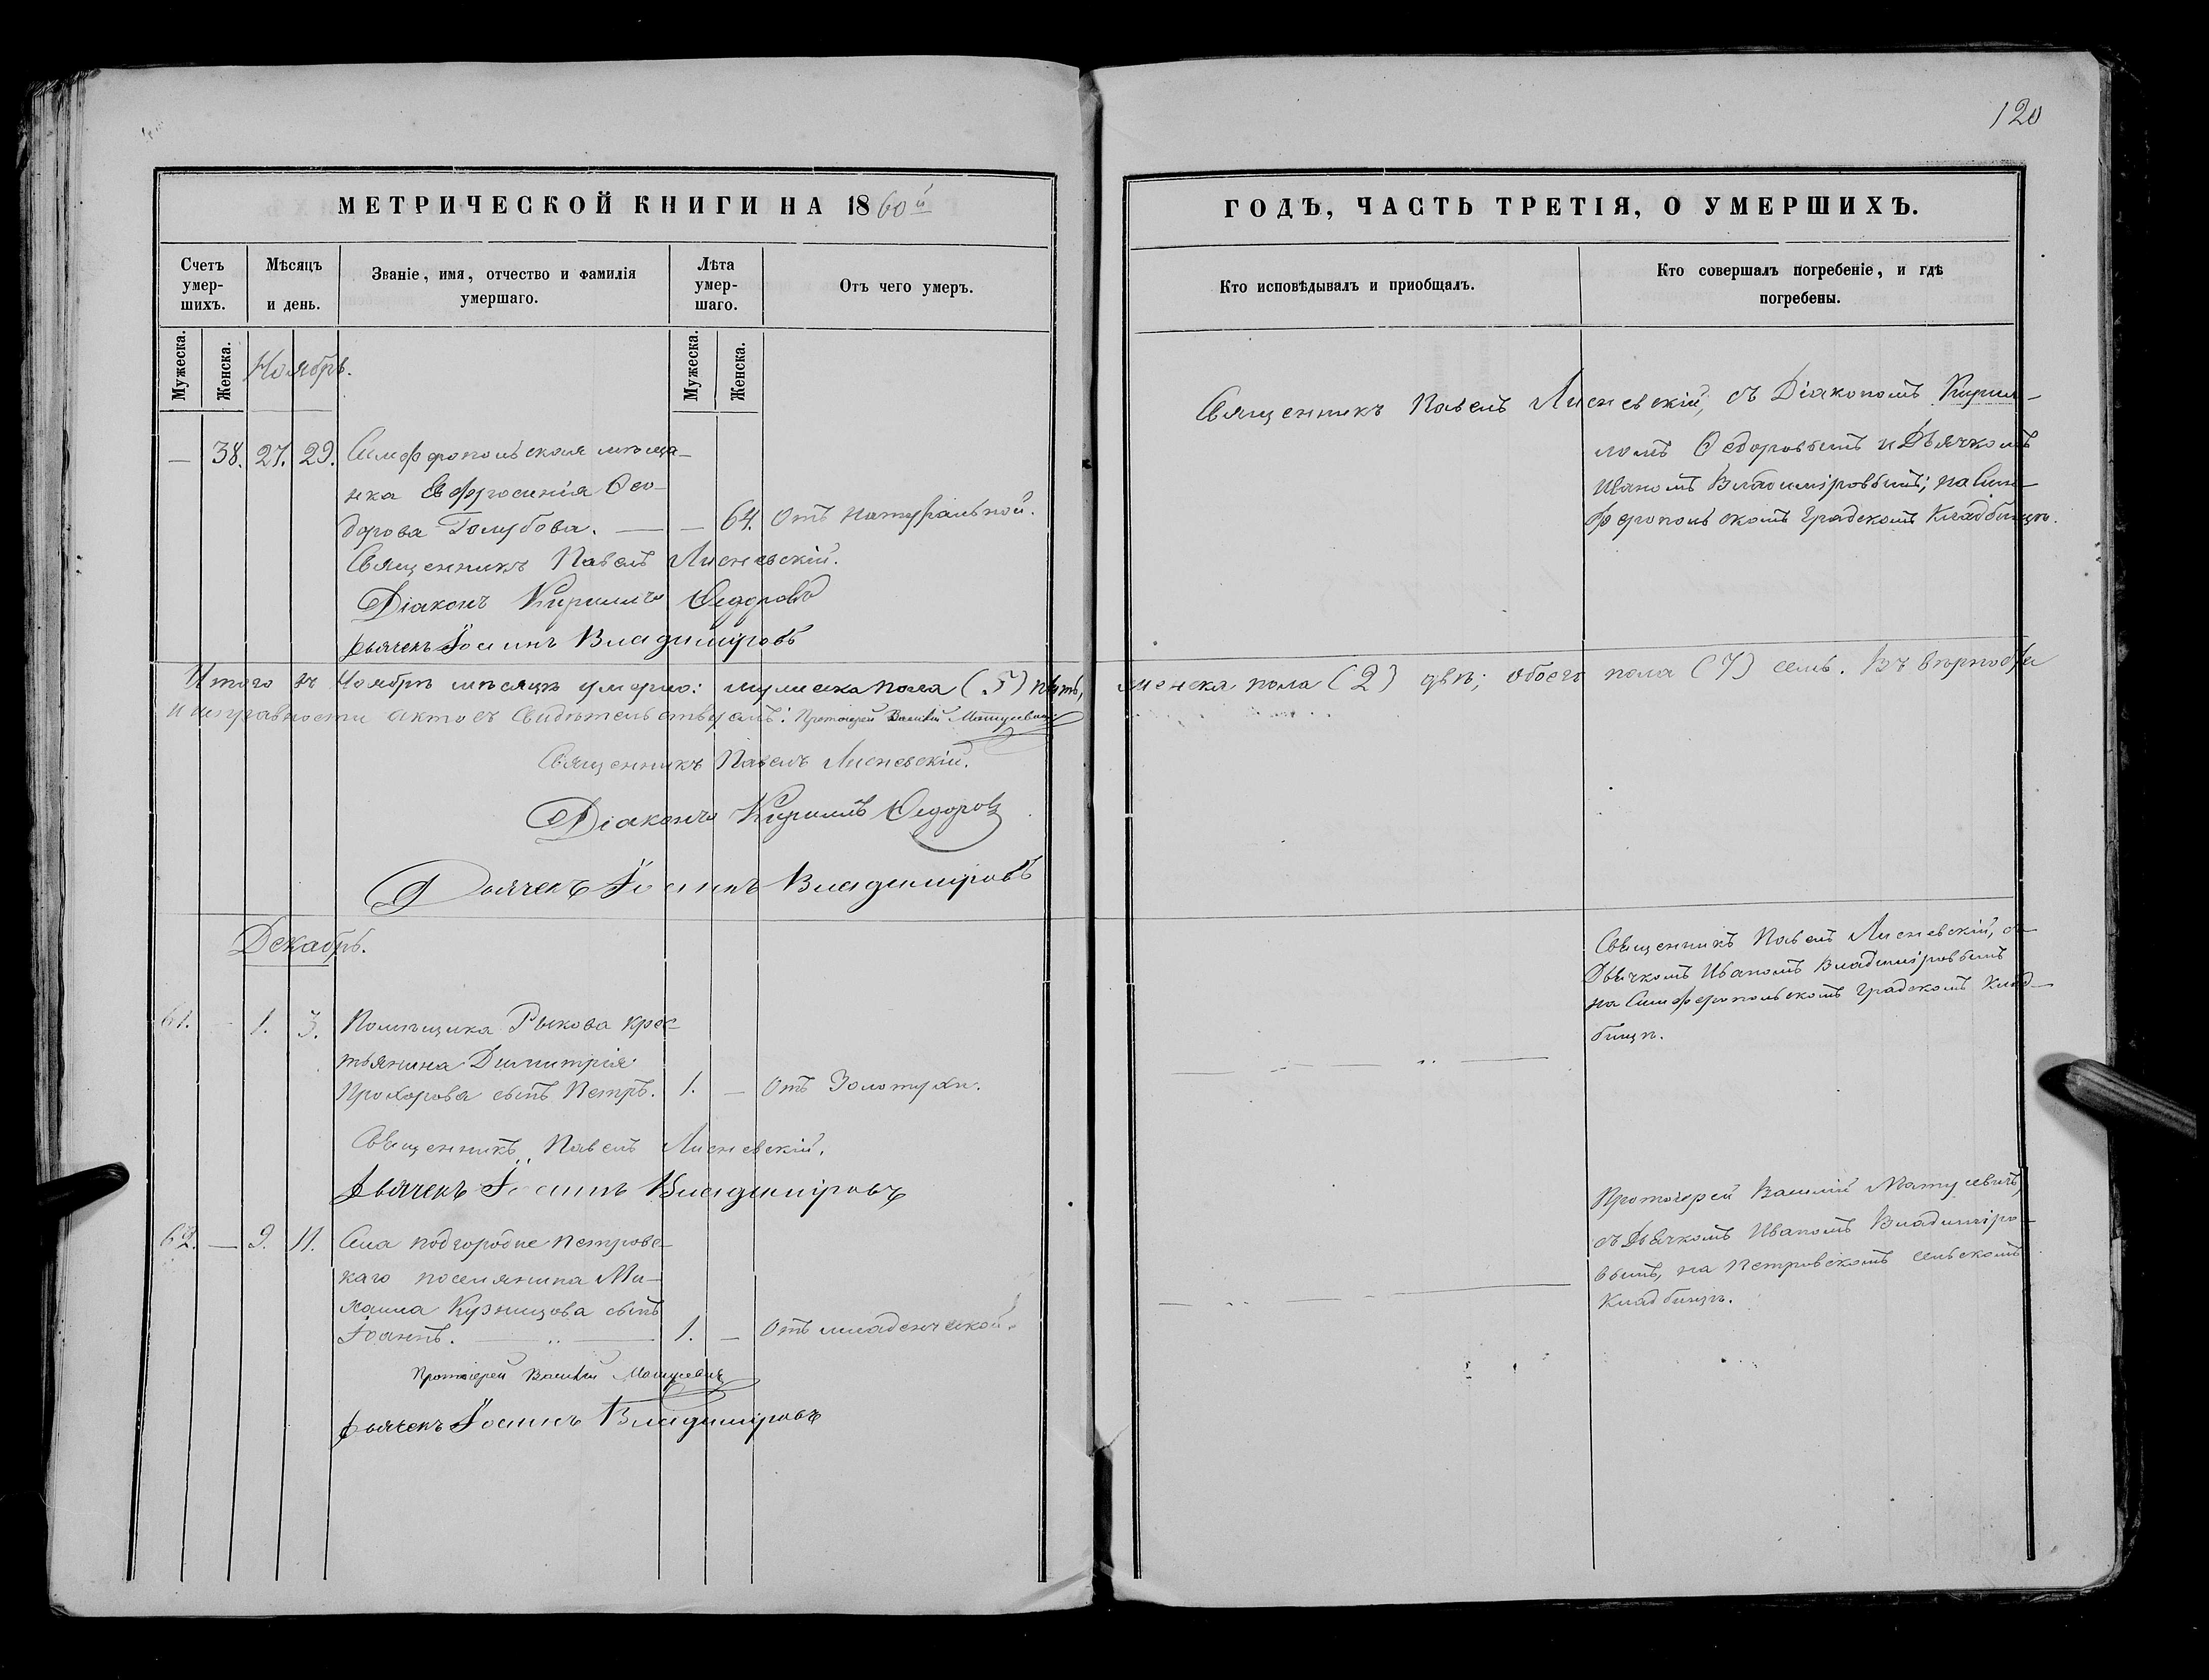 120
МЕТРИЧЕСКОЙ КНИГИ НА 1860й
Счетъ умер- шихъ.
Мѣсяцъ и день.
Званіе, имя, отчество и фамилія умершаго.
Лѣта умер- шаго.
Отъ чего умеръ.
Мужеска.
Женска.
Мужеска.
Женска.
Ноябрь.
— 38. 27. 29. Симферопольская мѣща-
нка Евфросинія Ѳео-
дорова Голубова. — — 64. Отъ натуральной.
Священникъ Павелъ Лисневскій.
Діаконъ Кириллъ Ѳедоровъ
Дьячекъ Іоаннъ Владиміровъ
Итого въ Ноябрѣ мѣсяцѣ умерло: мужеска пола (5) пять,
и исправности актовъ свидѣтельствуемъ: Протоіерей Василій Матусевичъ
Священникъ Павелъ Лисневскій.
Діаконъ Кириллъ Ѳедоровъ
Дьячекъ Іоаннъ Владиміровъ
Декабрь.
61. - 1. 3. Помѣщика Рыкова крес-
тьянина Димитрія
Прохорова сынъ Петръ. 1. — Отъ Золотухи.
Священникъ Павелъ Лисневскій.
Дьячекъ Іоаннъ Владиміровъ
62. — 9. 11. Села подгородне Петровс-
каго поселянина Ми-
хаила Кузнецова сынъ
Іоаннъ. — 1. — Отъ младенческой.
Протоіерей Василій Матусевичъ
Дьячекъ Іоаннъ Владиміровъ
ГОДЪ, ЧАСТЬ ТРЕТІЯ, О УМЕРШИХЪ.
Кто исповѣдывалъ и пріобщалъ.
Кто совершалъ погребеніе, и гдѣ погребены.
Священникъ Павелъ Лисневскій, съ Діакономъ Кирил-
ломъ Ѳедоровымъ и Дьячкомъ
Иваномъ Владиміровымъ; на Сим-
феропольскомъ градскомъ Кладбищѣ.
женска пола (2) двѣ; обоего пола (7) семь. Въ вѣрности
Священникъ Павелъ Лисневскій, съ
Дьячкомъ Иваномъ Владиміровымъ
на Симферопольскомъ градскомъ Клад-
бищѣ.
Протоіерей Василій Матусевичъ,
съ Дьячкомъ Иваномъ Владиміро-
вымъ, на Петровскомъ сельскомъ
Кладбищѣ.